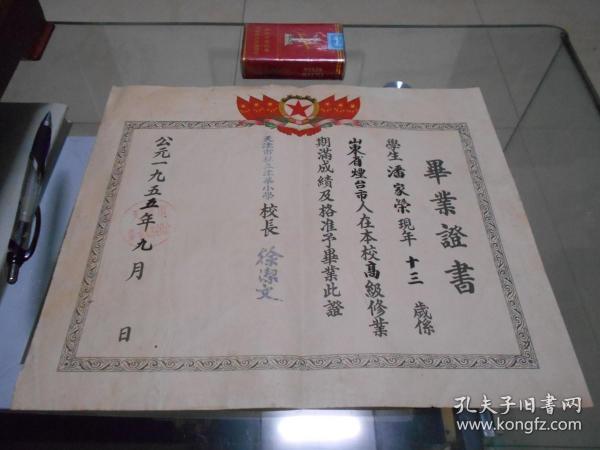 畢業證書
學生潘家榮現年十三歲係
山東省煙台市人在本校高級修業
期滿成績及格准予畢業此證
天津市私立津華小學校長徐潔文
公元一九五五年九月 日
孔夫子旧书网
www.kongfz.com